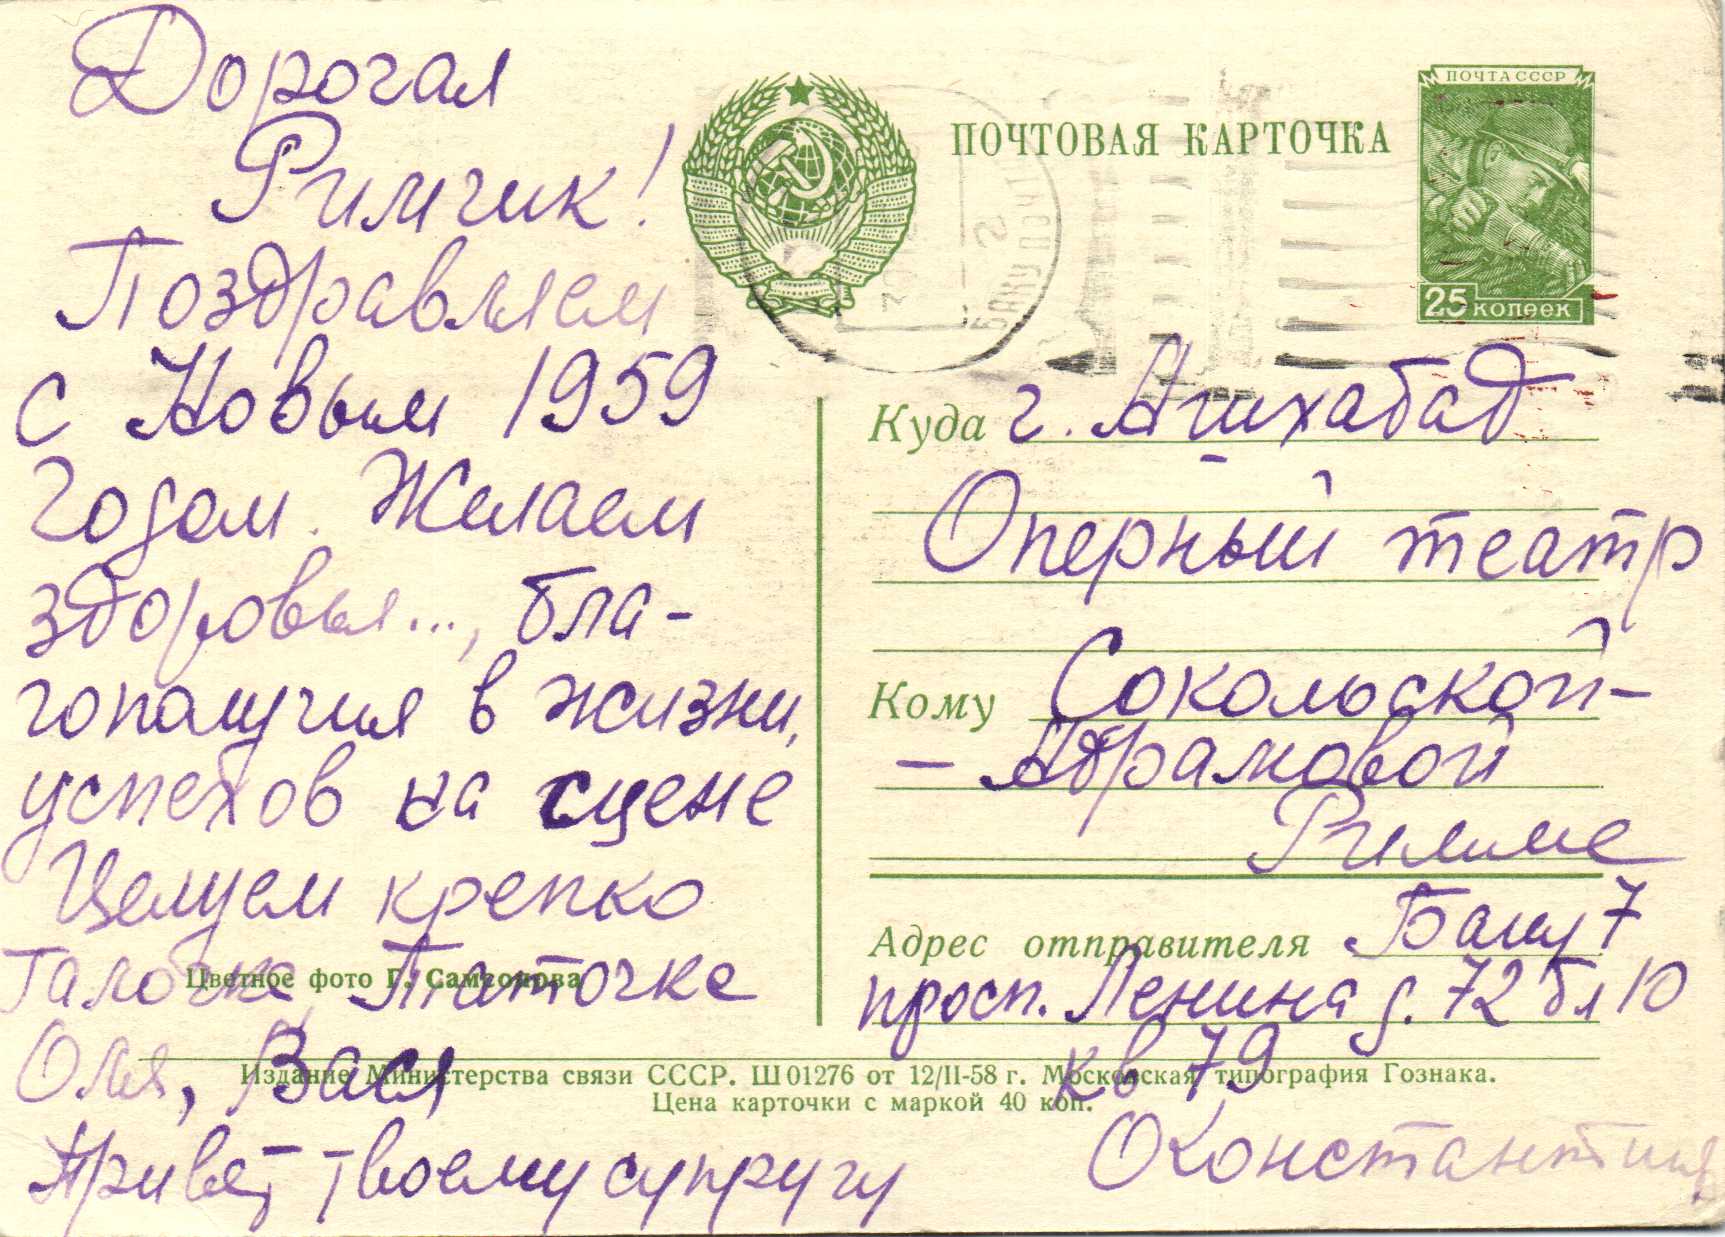 Дорогая
Римчик!
Поздравляем
с Новым 1959
Годом. Желаем
здоровья..., бла-
гополучия в жизни,
успехов на сцене
Целуем крепко
Галочке
Оля, Вася
Привет твоему супругу
Цветное фото Г. Самсонова
ПОЧТОВАЯ КАРТОЧКА
ПОЧТА СССР
25 КОПЕЕК
БАКУ ПОЧТ
Куда г. Ашхабад
Оперный театр
Кому Сокольской-
- Абрамовой
Римме
Адрес отправителя Баку 7
просп. Ленина д. 72 бл 10
кв 79
Издание Министерства связи СССР. Ш 01276 от 12/II-58 г. Московская типография Гознака.
Цена карточки с маркой 40 коп.